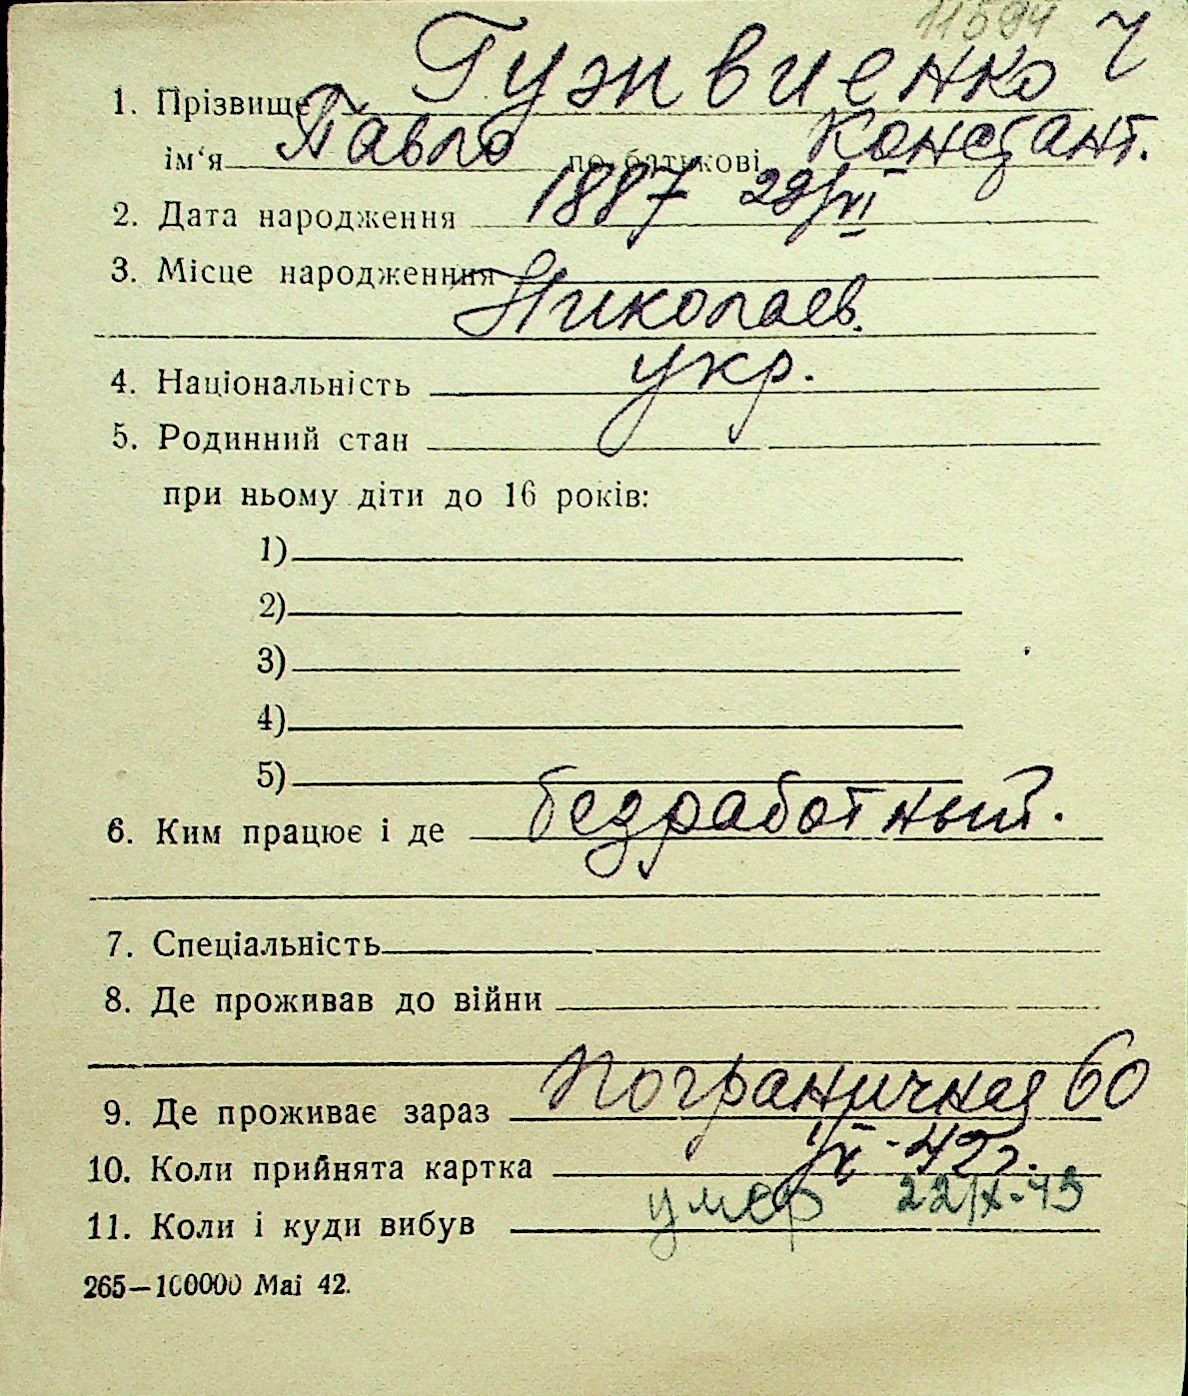 11594 ч
1. Прізвище Гужвиенко
ім‘я Павло по батькові Констант.
2. Дата народження 1887 29/VI
3. Місце народженння
Николаев.
4. Національність укр.
5. Родинний стан
при ньому діти до 16 років:
1)
2)
3)
4)
5)
6. Ким працює і де безработный.
7. Спеціальність
8. Де проживав до війни
9. Де проживає зараз Пограничная 60
10. Коли прийнята картка 42г.
11. Коли і куди вибув умер 22/IX-43
265—100000 Mai 42.